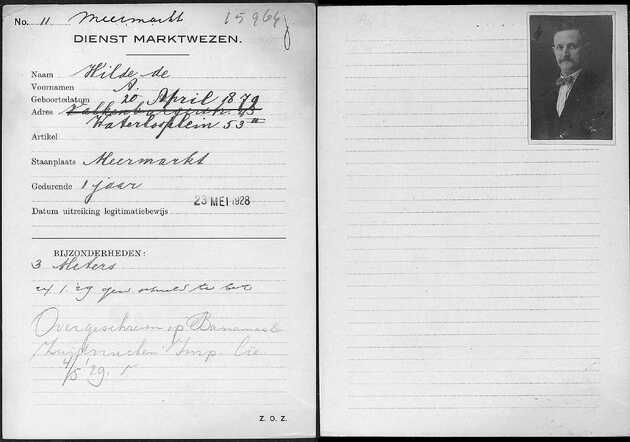 No. 11 Meermarkt 15964
DIENST MARKTWEZEN.
Naam Wilde de
Voornamen A.
Geboortedatum 20 April 1879
Adres 43
Waterlooplein 53 II
Artikel
Staanplaats Meermarkt
Gedurende 1 jaar
23 MEI 1928
Datum uitreiking legitimatiebewijs
BIJZONDERHEDEN:
3 Meters
24/1 29 te
Overgeschreven op
Zuidvruchten Imp. Cie
4/5 '29.
Z. O. Z.